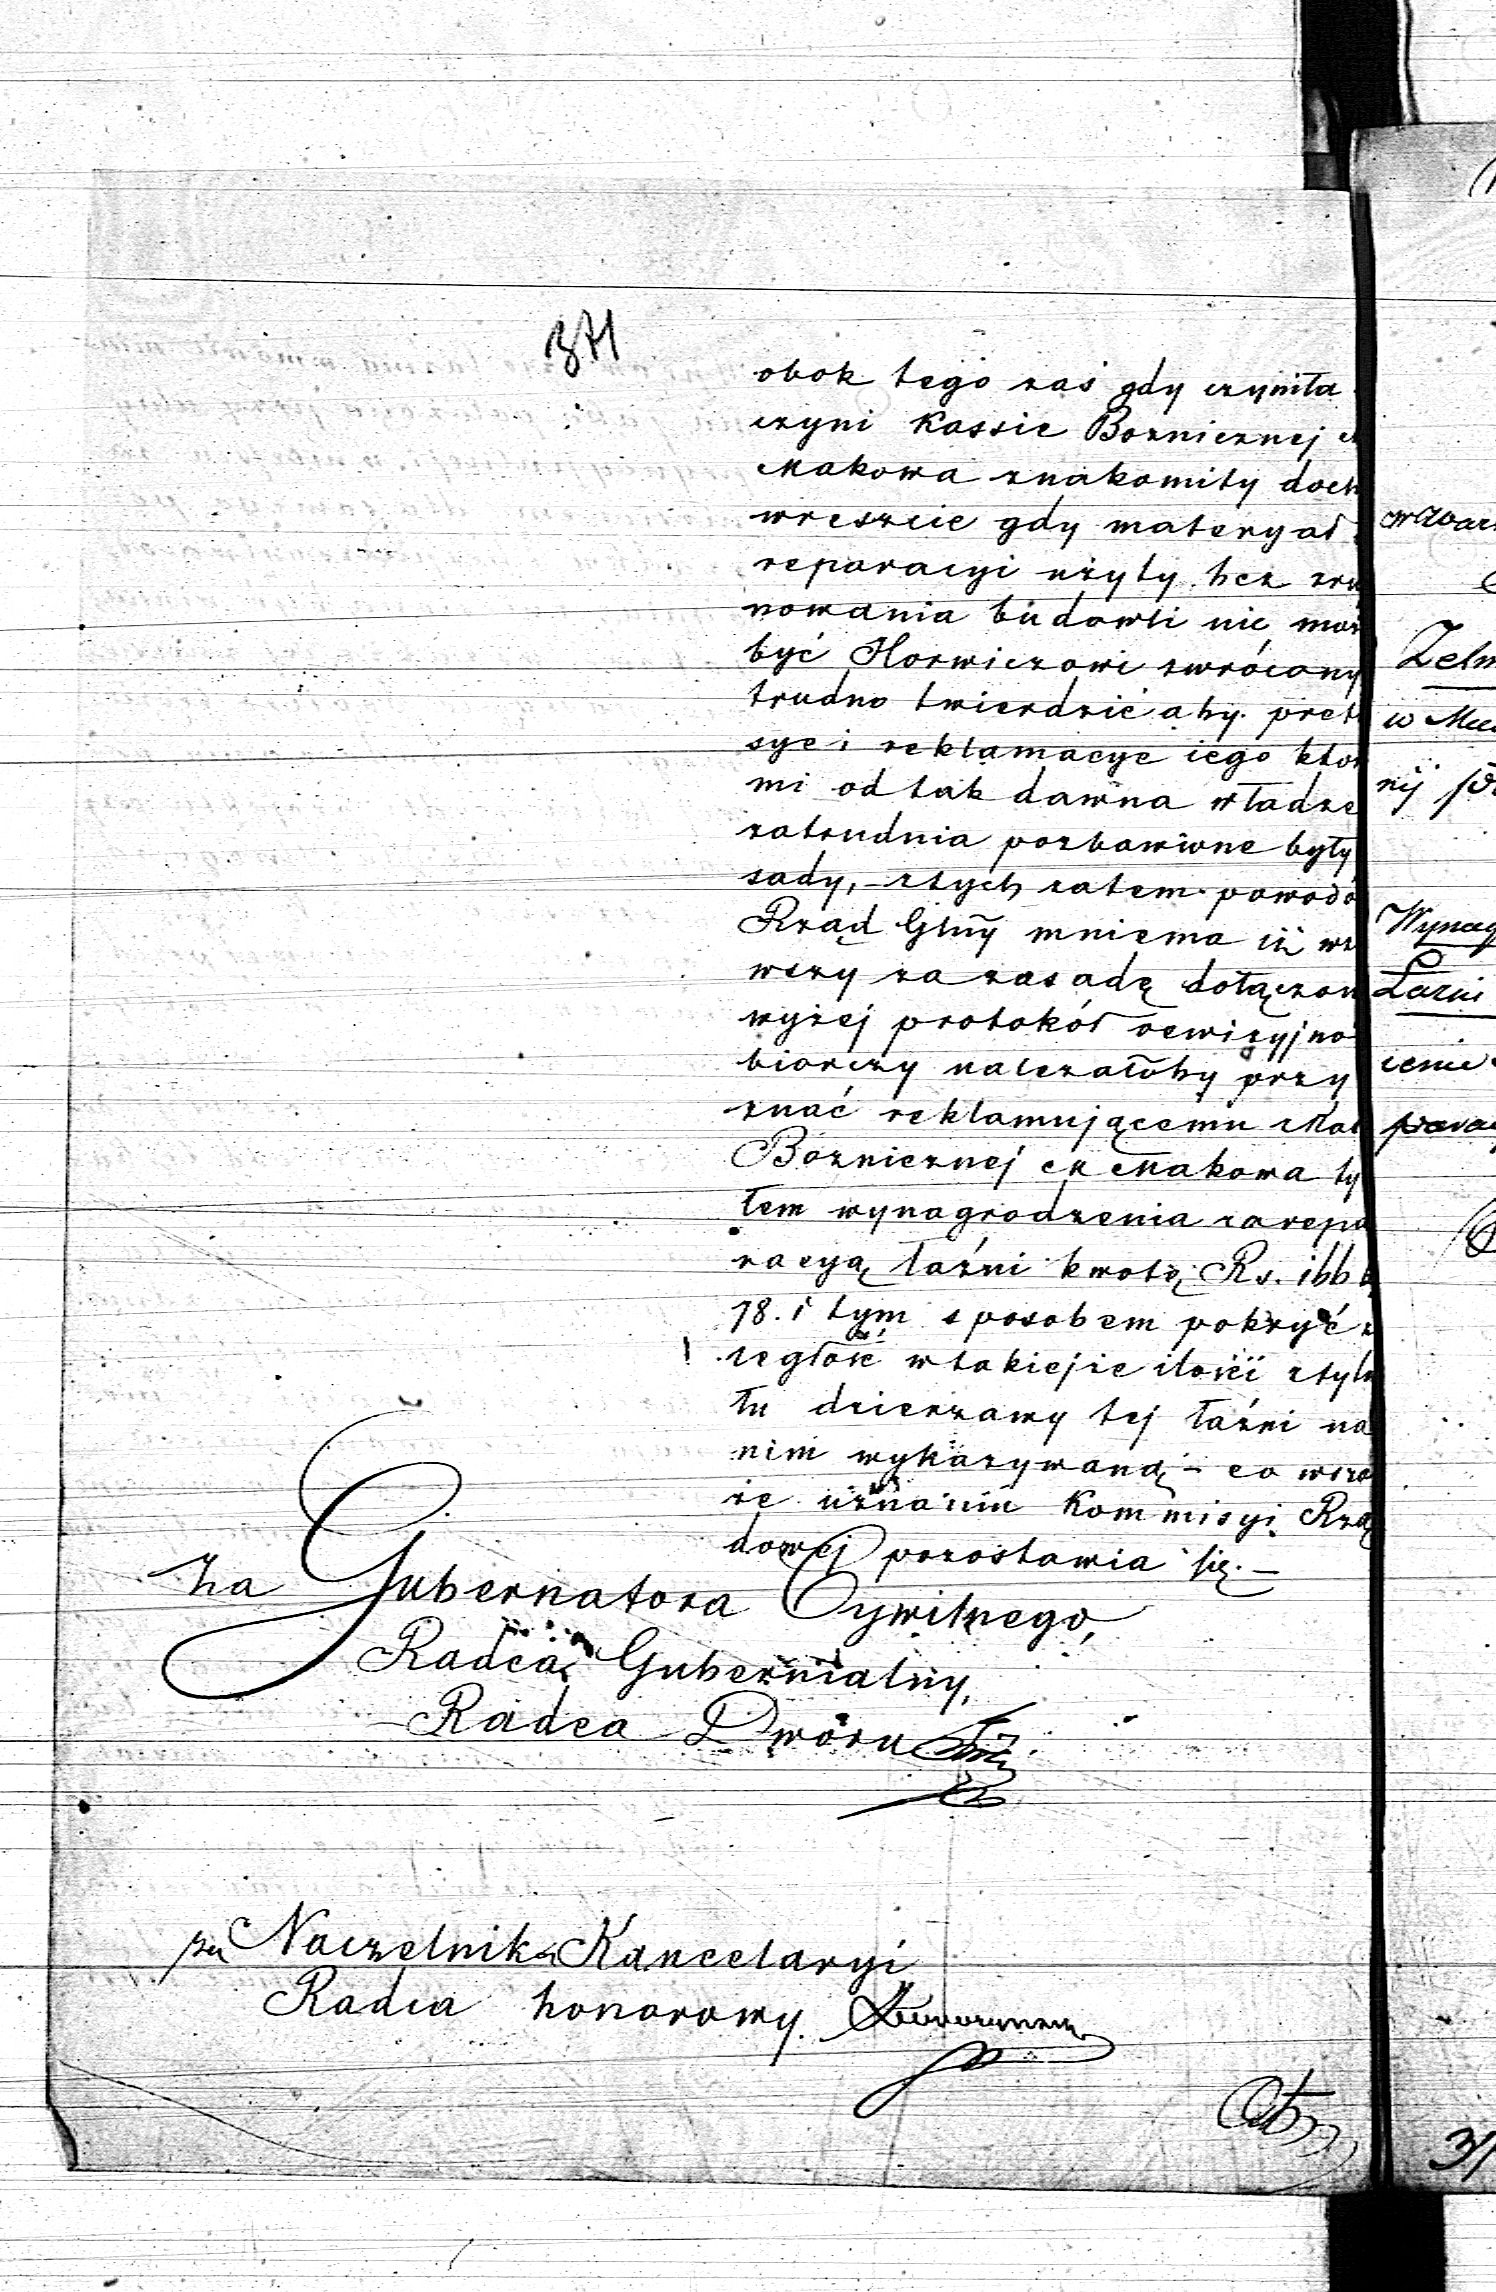 371
obok tego zaś gdy czyniła
czyni Kassie Bozniczney
Makowa znakomity doch
wreszcie gdy materyał
reparacyi użyty bez zruj
nowania budowli nie moż
być Horwiczowi zwrócony
trudno twierdzić aby preten
syei reklamacye iego któr
mi od tak dawna władze
zatrudnia pozbawione były
sady, – z tych zatem powodó
Rząd Glny mniema iż wz
wszy za zasadę dołączon
wyżej protokół rewizyjno
biorczy należałoby przy
znać reklamującemu z Kas
Bozniczney M Makowa ty
łem wynagrodzenia za repa
racyą łaźni kwotę Rs. 166
78. i tym sposobem pokryć
ległość w takiejże ilości z tytu
łu dzierżawy tej łaźni na
nim wykazywaną – co wsza
że uznaniu Kommisyi Rzą
dowej pozostawia się. –
Za Gubernatora Cywilnego,
Radca Gubernialny,
Radca Dworu
za Naczelnika Kancelaryi
Radca honorowy
w War
Zelm
w Mie
nij
Wynag
Łazni
cenie
31